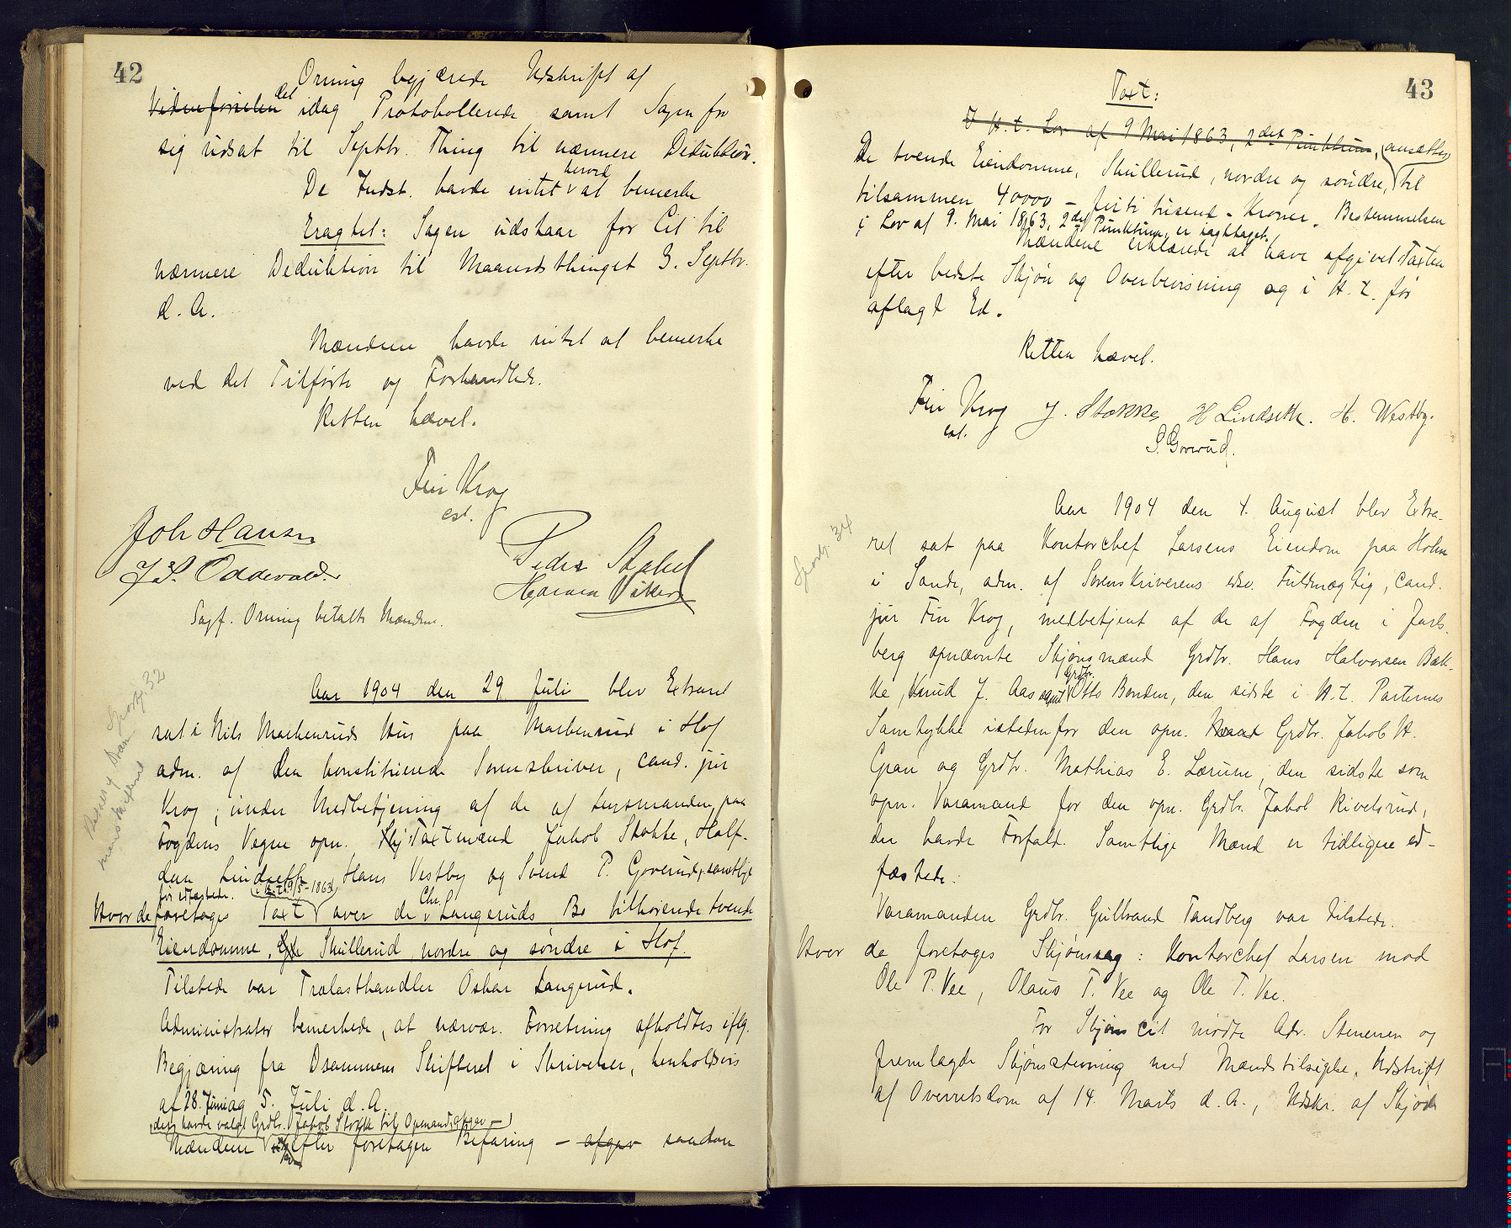 42
Orning begjærede Udskrift af
Vidneførselen det idag Protokollerede samt Sagen for
sig udsat til Septbr. Thing til nærmere Deduktion.
De Indst. havde intet herved at bemerke
Eragtet: Sagen udstaar for Cit til
nærmere Deduktion til Maanedsthinget 3. Septbr.
d. A.
Mændene havde intet at bemerke
ved det Tilførte og Forhandlede.
Retten hævet.
Fin Krog
cst.
Joh Hansen
J S. Oddevald
Peder Stabel
Sagf. Orning betalte Mændene.
Aar 1904 den 29 Juli blev Extraret
sat i Nils Markenruds Hus paa Markenrud i Hof
adm. af den konstituerede Sorenskriver, cand. jur
Krog, under Medbetjening af de af Lensmanden, paa
Fogdens Vegne opn. Skj Taxtmænd Jakob Stokke, Half-
dan Lindseth, Hans Vestby og Svend P. Goverud, samtlige
før edfæstede. i H. t. L 9/5-1863
Hvor da foretoges Taxt over de Chr. Langeruds Bo tilhørende tvende
Eiendomme, Skullerud nordre og søndre i Hof.
Tilstede var Trælasthandler Oskar Langerud.
Administrator bemerkede, at nærvær. Forretning afholdtes iflg.
Begjæring fra Drammens Skifteret i Skrivelser, henholdsvis
af 28. Juni og 5. Juli d. A.
der havde valgt Grdbr. Jakob Stokke til Opmand afgav
Mændene efter foretagen Befaring – afgav saadan
43
Taxt:
I H. t. Lov af 9 Mai 1863, 2det Punktum,
De tvende Eiendomme, Skullerud, nordre og søndre, ansættes til
tilsammen 40000 – firti tusend – Kroner. Bestemmelsen
i Lov af 9. Mai 1863, 2det Punktum, er iagttaget.
Mændene erklærede at have afgivet Taxten
efter bedste Skjøn og Overbevisning og i H. t. før
aflagt Ed.
Retten hævet.
Fin Krog J. Stokke H Lindseth. H. Westby.
cst. S. Goverud.
Aar 1904 den 4. August blev Extra-
ret sat paa Kontorchef Larsens Eiendom paa Holm
i Sande, adm. af Sorenskriverens edsv. Fuldmægtig, cand.
jur Fin Krog, medbetjent af de af Fogden i Jarls-
berg opnævnte Skjønsmænd Grdbr. Hans Halvorsen Bæk-
ke, Knud J. Aas samt Grdbr. Otto Bonden, den sidste i H. t. Parternes
Samtykke istedenfor den opn. Grdbr. Jakob H.
Gran og Grdbr. Mathias E. Lærum, den sidste som
opn. Varamand for den opn. Grdbr. Jakob Kivelsrud,
der havde Forfald. Samtlige Mænd er tidligere ed-
fæstede.
Varamanden Grdbr. Gulbrand Tandberg var tilstede.
Hvor da foretoges Skjønssag: Kontorchef Larsen mod
Ole P. Vee, Olaus T. Vee og Ole T. Vee.
For Skjøns cit mødte Adv. Stenersen og
fremlagde Skjønsstevning med Mændstilsigelse, Udskrift
af Overretsdom af 14. Marts d. A., Udskr. af Skjøde